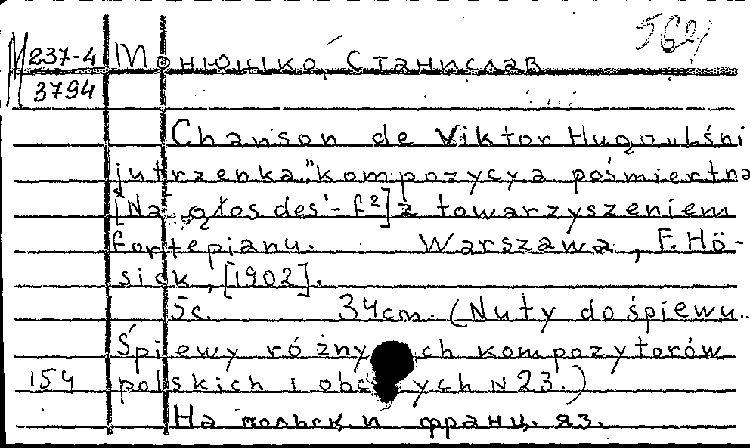 562
М 237-4 Монюшко, Станислав
3794
Chanson de Viktor Hugo „Lśni
jutrzenka." kompozycya pośmiertna
[Na głos des'- f²] z towarzyszeniem
fortepianu. Warszawa, F. Hö-
sick, [1902].
5c. 34cm. (Nuty do śpiewu.
Śpiewy różnych kompozytorów
154 polskich i obcych N 23.)
На польск. и франц. яз.